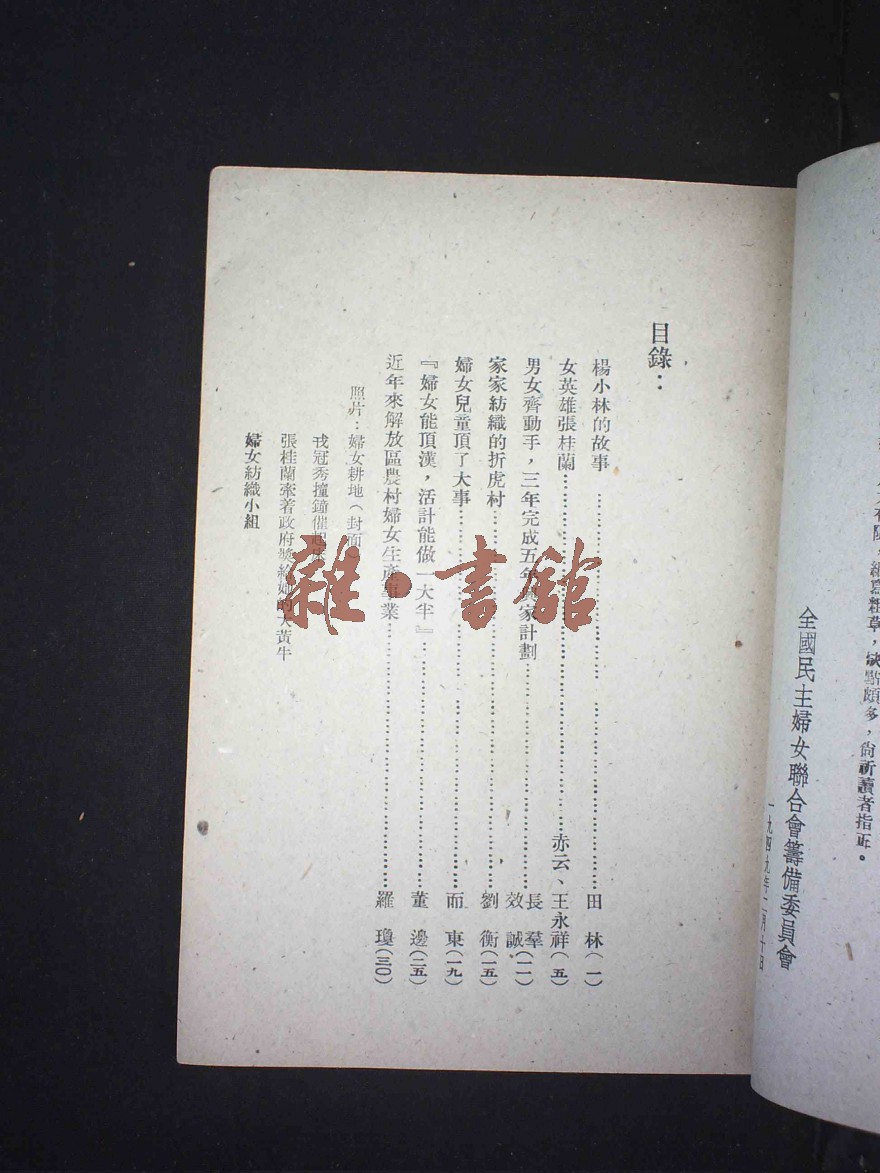 ﹍有限，編寫粗草，缺點頗多，尙祈讀者指正。
全國民主婦女聯合會籌備委員會
一九四九年二月十日
目錄：
楊小林的故事……田林（一）
女英雄張桂蘭……亦云、王永祥（五）
男女齊動手，三年完成五年興家計劃……長羣 效誠（一一）
家家紡織的折虎村……劉衡（一五）
婦女兒童頂了大事……而東（一九）
『婦女能頂漢，活計能做一大半』……董邊（二五）
近年來解放區農村婦女生產事業……羅瓊（三〇）
照片：婦女耕地（封面）
戎冠秀撞鐘催起床
張桂蘭牽着政府獎給她的大黃牛
婦女紡織小組
雜·書館